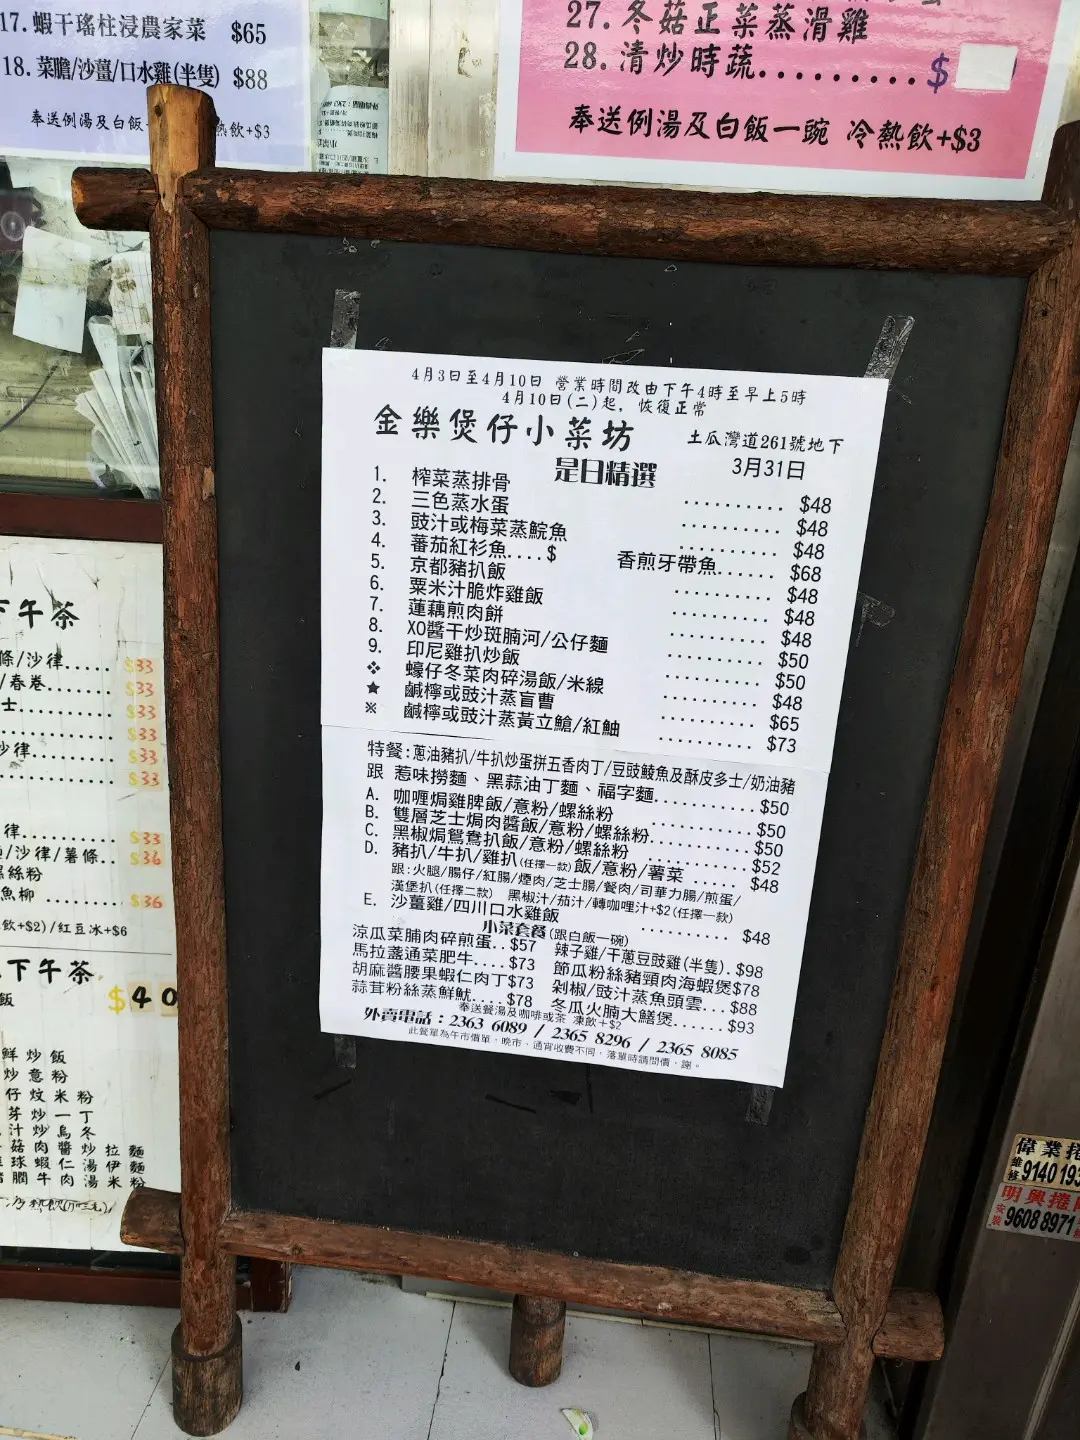 17. 蝦干瑤柱浸農家菜 $65
18. 菜膽/沙薑/口水雞(半隻) $88
奉送例湯及白飯 熱飲+$3
27. 冬菇正菜蒸滑雞
28. 清炒時蔬.........$
奉送例湯及白飯一碗 冷熱飲+$3
4月3日至4月10日 營業時間改由下午4時至早上5時
4月10日(二)起, 恢復正常
金樂煲仔小菜坊 土瓜灣道261號地下
是日精選 3月31日
1. 榨菜蒸排骨 .......... $48
2. 三色蒸水蛋 .......... $48
3. 豉汁或梅菜蒸鯇魚 .......... $48
4. 蕃茄紅衫魚....$ 香煎牙帶魚...... $68
5. 京都豬扒飯 .......... $48
6. 粟米汁脆炸雞飯 .......... $48
7. 蓮藕煎肉餅 .......... $48
8. XO醬干炒斑腩河/公仔麵 .......... $50
9. 印尼雞扒炒飯 .......... $50
❖ 蠔仔冬菜肉碎湯飯/米線 .......... $48
★ 鹹檸或豉汁蒸盲曹 .......... $65
※ 鹹檸或豉汁蒸黃立鯧/紅鮋 .......... $73
特餐:蔥油豬扒/牛扒炒蛋拼五香肉丁/豆豉鯪魚及酥皮多士/奶油豬
跟 惹味撈麵、黑蒜油丁麵、福字麵...........$50
A. 咖喱焗雞脾飯/意粉/螺絲粉 ..........$50
B. 雙層芝士焗肉醬飯/意粉/螺絲粉..........$50
C. 黑椒焗鴛鴦扒飯/意粉/螺絲粉 ..........$52
D. 豬扒/牛扒/雞扒(任擇一款)飯/意粉/薯菜 ..... $48
跟:火腿/腸仔/紅腸/煙肉/芝士腸/餐肉/司華力腸/煎蛋/
漢堡扒(任擇二款) 黑椒汁/茄汁/轉咖哩汁+$2(任擇一款)
E. 沙薑雞/四川口水雞飯 .......... $48
小菜套餐(跟白飯一碗)
涼瓜菜脯肉碎煎蛋..$57 辣子雞/干蔥豆豉雞(半隻).$98
馬拉盞通菜肥牛....$73 節瓜粉絲豬頸肉海蝦煲$78
胡麻醬腰果蝦仁肉丁$73 剁椒/豉汁蒸魚頭雲...$88
蒜茸粉絲蒸鮮魷....$78 冬瓜火腩大鱔煲......$93
奉送餐湯及咖啡或茶 凍飲+$2
外賣電話:2363 6089 / 2365 8296 / 2365 8085
此餐單為午市價單,晚市、通宵收費不同,落單時請問價,謝。
下午茶
條/沙律..... $33
/春卷....... $33
士.......... $33
$33
沙律........ $33
$33
律.......... $33
/沙律/薯條.. $36
絲粉
魚柳 ....... $36
飲+$2)/紅豆冰+$6
下午茶
飯 $40
鮮炒飯
炒意粉
仔炆米粉
芽炒一丁
汁炒烏冬
菇肉醬炒拉麵
球蝦仁湯伊麵
腩牛肉湯米粉
偉業捲
維修 9140 193
明興捲
安裝 9608 8971